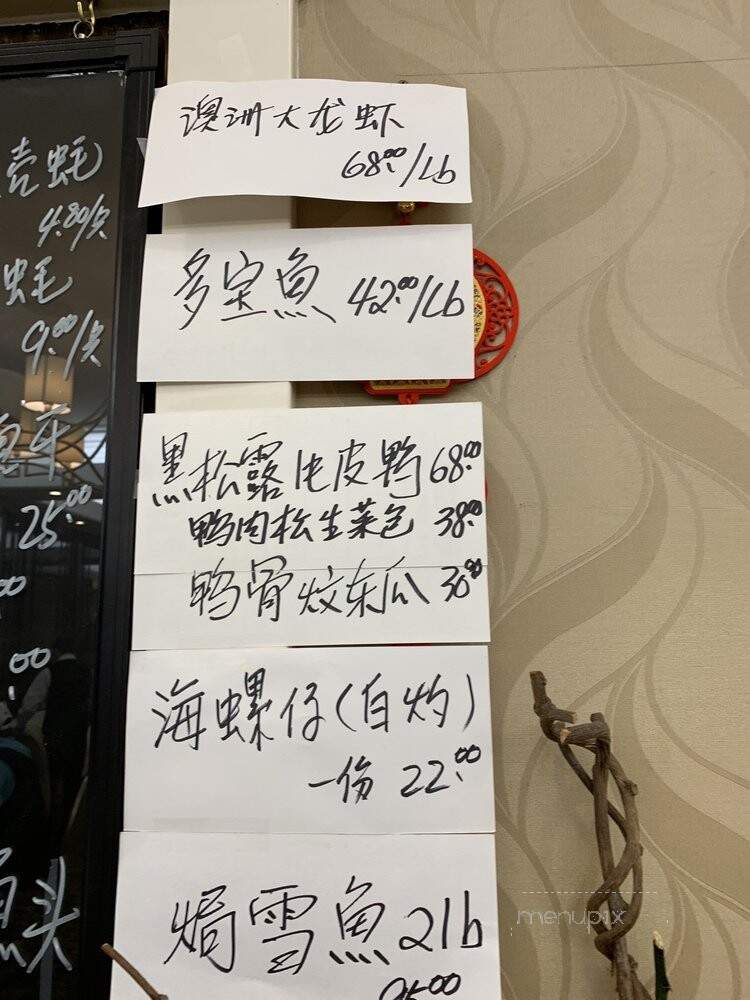 澳洲大龙虾
68.00/Lb
多宝魚 42.00/Lb
黑松露片皮鸭 68.00
鸭肉松生菜包 38.00
鸭骨炆东瓜 30.00
海螺仔(白灼)
一份 22.00
焗雪魚 2lb
壳蚝
4.80/只
蚝
9.00/只
25.00
.00
头
menupix